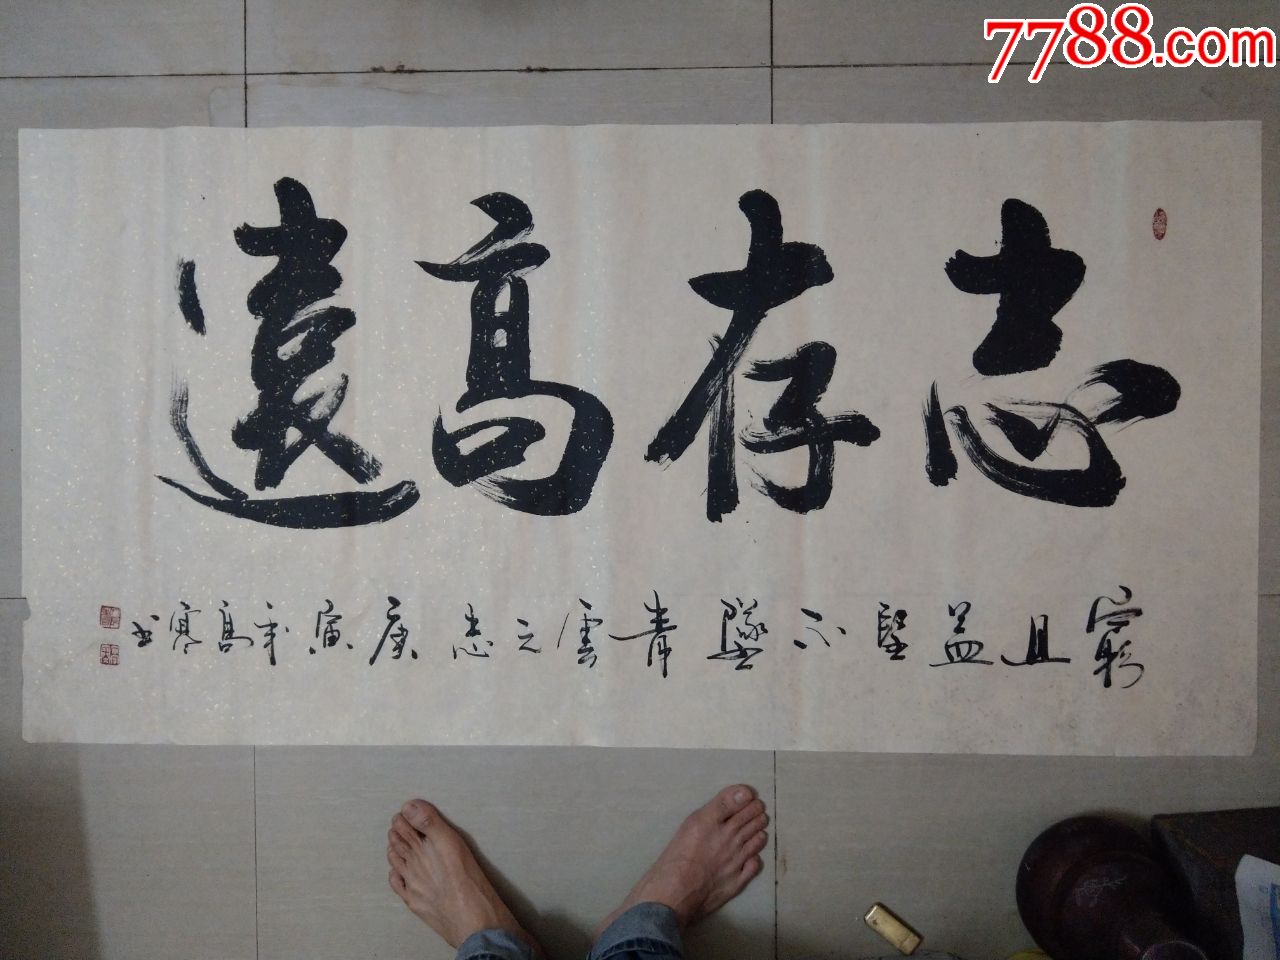 7788.com
志存高遠
窮且益堅不墜青雲之志庚寅年高寒书